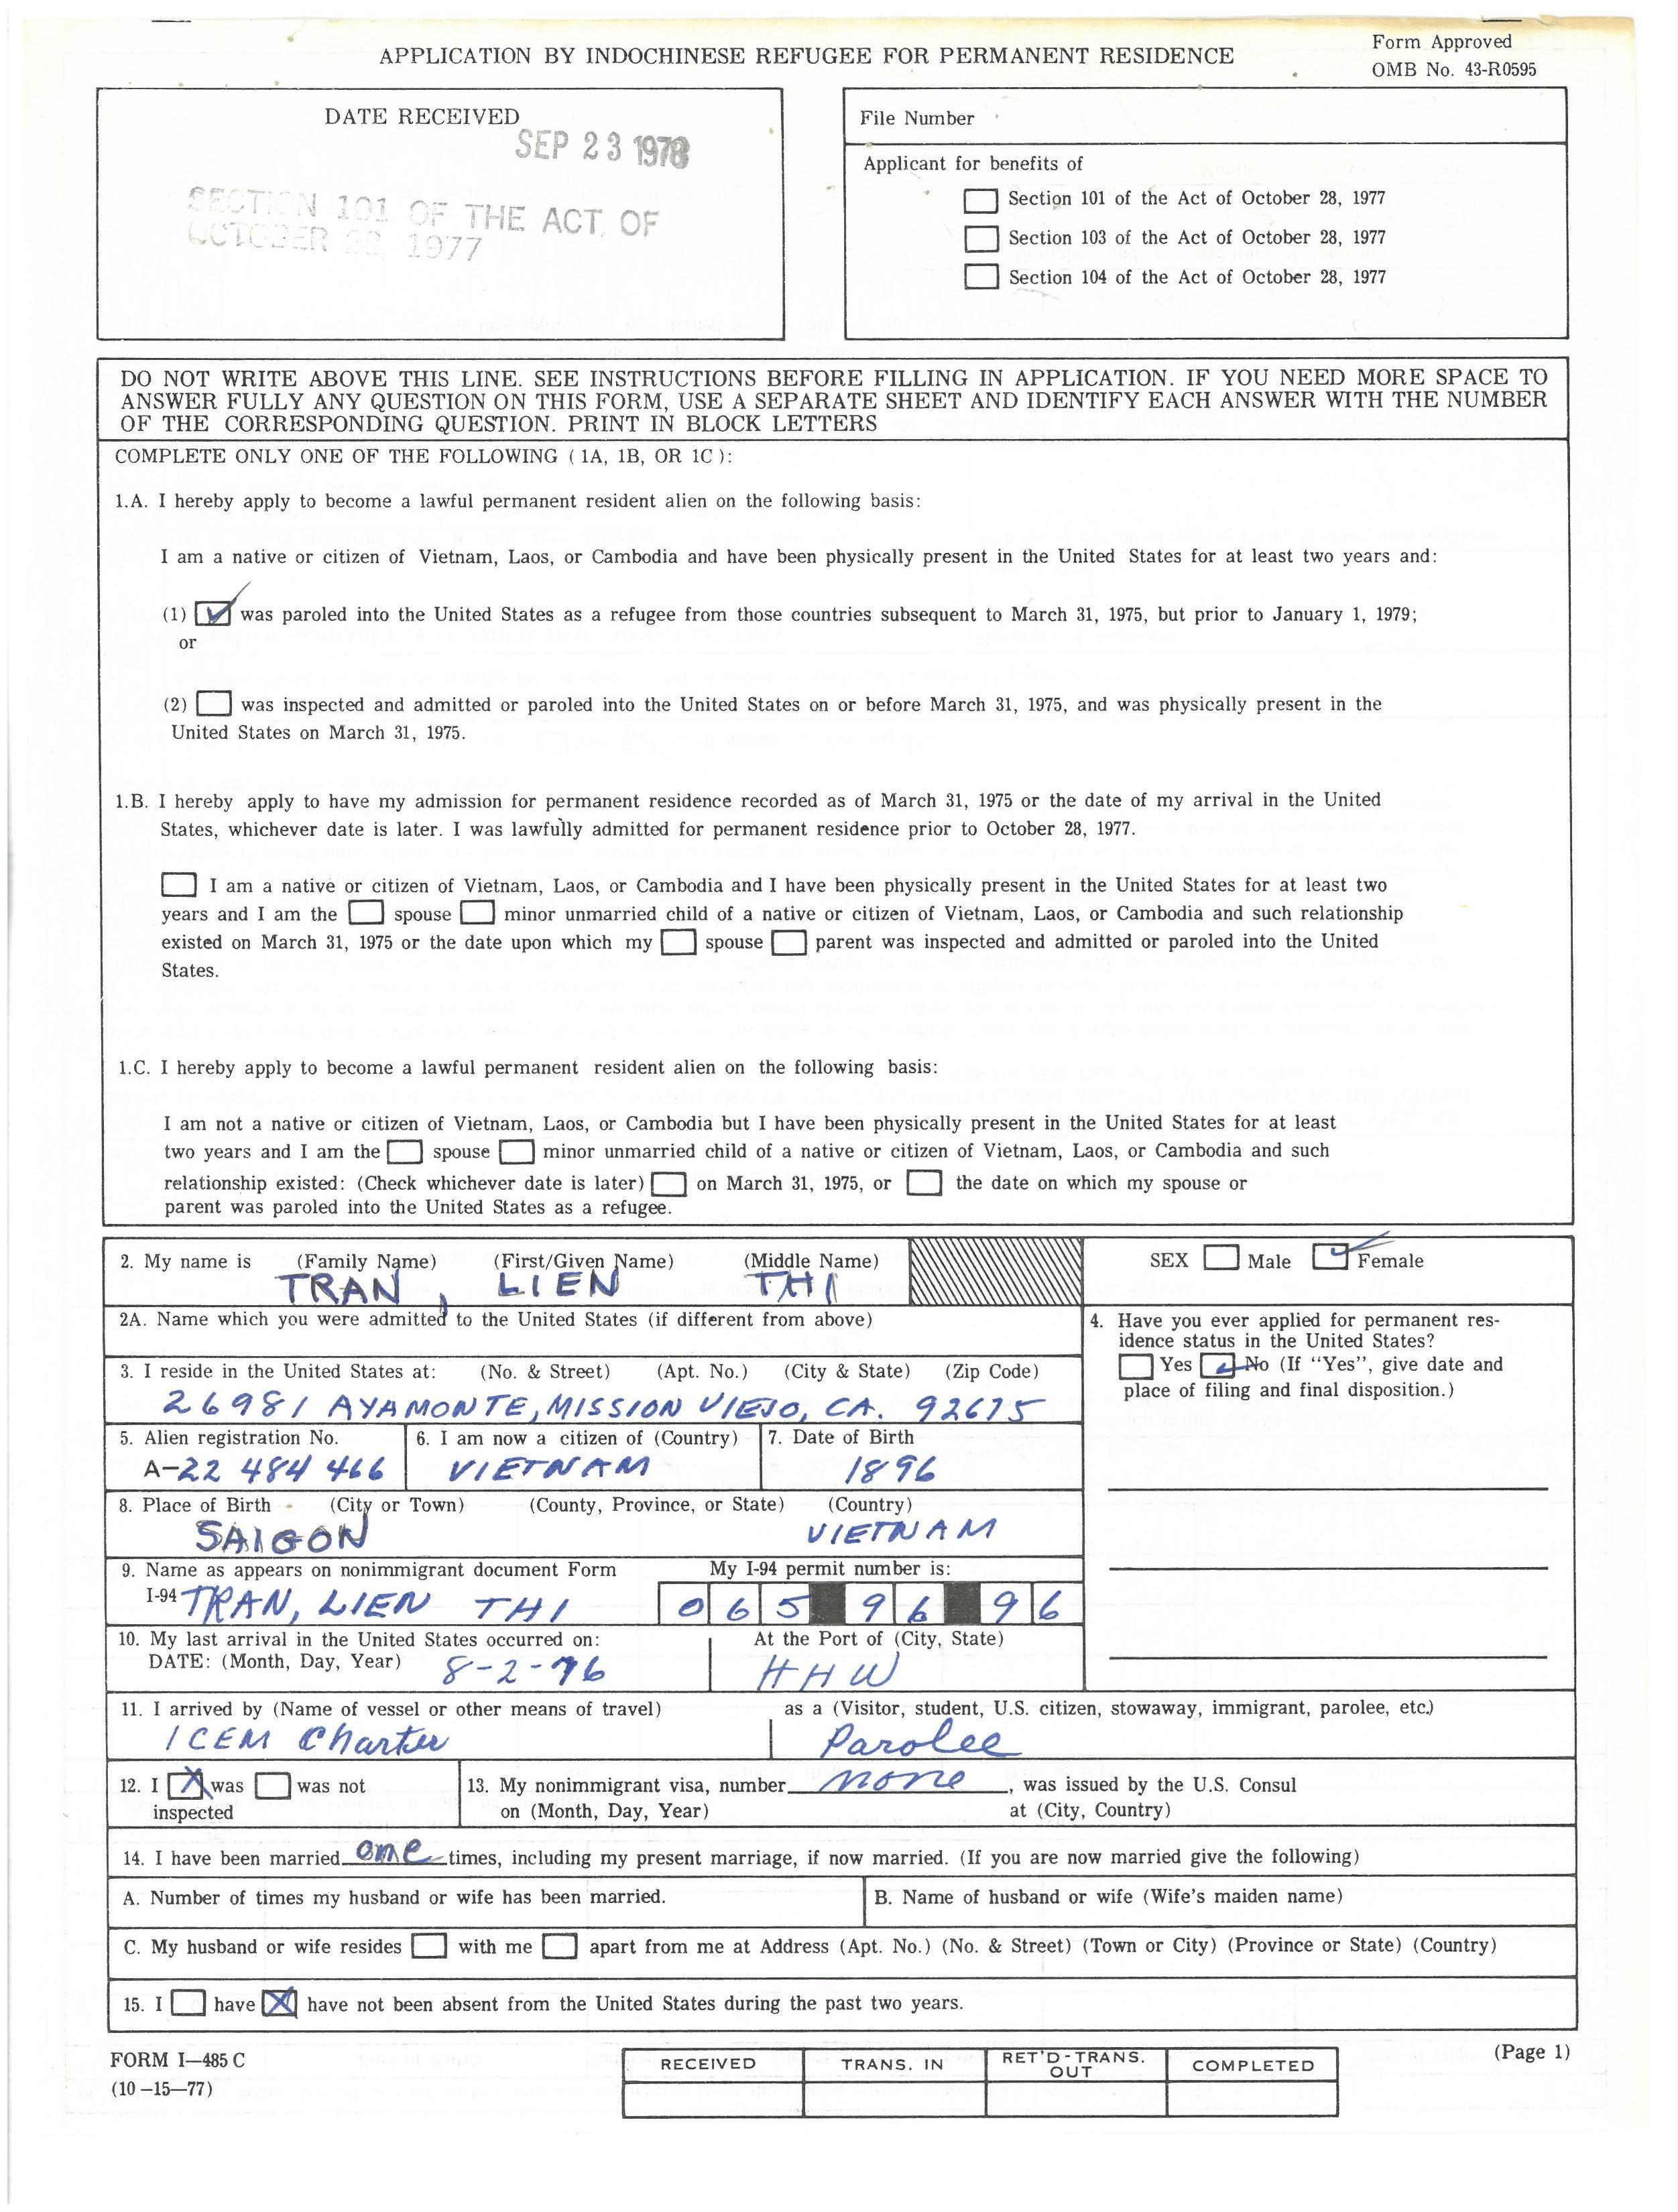 APPLICATION BY INDOCHINESE REFUGEE FOR PERMANENT RESIDENCE
Form Approved
OMB No. 43-R0595
DATE RECEIVED
SEP 23 1978
SECTION 101 OF THE ACT OF
OCTOBER 28, 1977
File Number
Applicant for benefits of
Section 101 of the Act of October 28, 1977
Section 103 of the Act of October 28, 1977
Section 104 of the Act of October 28, 1977
DO NOT WRITE ABOVE THIS LINE. SEE INSTRUCTIONS BEFORE FILLING IN APPLICATION. IF YOU NEED MORE SPACE TO
ANSWER FULLY ANY QUESTION ON THIS FORM, USE A SEPARATE SHEET AND IDENTIFY EACH ANSWER WITH THE NUMBER
OF THE CORRESPONDING QUESTION. PRINT IN BLOCK LETTERS
COMPLETE ONLY ONE OF THE FOLLOWING ( 1A, 1B, OR 1C ):
1.A. I hereby apply to become a lawful permanent resident alien on the following basis:
I am a native or citizen of Vietnam, Laos, or Cambodia and have been physically present in the United States for at least two years and:
(1) was paroled into the United States as a refugee from those countries subsequent to March 31, 1975, but prior to January 1, 1979;
or
(2) was inspected and admitted or paroled into the United States on or before March 31, 1975, and was physically present in the
United States on March 31, 1975.
1.B. I hereby apply to have my admission for permanent residence recorded as of March 31, 1975 or the date of my arrival in the United
States, whichever date is later. I was lawfully admitted for permanent residence prior to October 28, 1977.
I am a native or citizen of Vietnam, Laos, or Cambodia and I have been physically present in the United States for at least two
years and I am the spouse minor unmarried child of a native or citizen of Vietnam, Laos, or Cambodia and such relationship
existed on March 31, 1975 or the date upon which my spouse parent was inspected and admitted or paroled into the United
States.
1.C. I hereby apply to become a lawful permanent resident alien on the following basis:
I am not a native or citizen of Vietnam, Laos, or Cambodia but I have been physically present in the United States for at least
two years and I am the spouse minor unmarried child of a native or citizen of Vietnam, Laos, or Cambodia and such
relationship existed: (Check whichever date is later) on March 31, 1975, or the date on which my spouse or
parent was paroled into the United States as a refugee.
2. My name is (Family Name) (First/Given Name) (Middle Name)
TRAN, LIEN THI
SEX Male Female
2A. Name which you were admitted to the United States (if different from above)
3. I reside in the United States at: (No. & Street) (Apt. No.) (City & State) (Zip Code)
26981 AYAMONTE, MISSION VIEJO, CA. 92675
4. Have you ever applied for permanent res-
idence status in the United States?
Yes No (If "Yes", give date and
place of filing and final disposition.)
5. Alien registration No.
A-22 484 466
6. I am now a citizen of (Country)
VIETNAM
7. Date of Birth
1896
8. Place of Birth (City or Town) (County, Province, or State) (Country)
SAIGON VIETNAM
9. Name as appears on nonimmigrant document Form
I-94 TRAN, LIEN THI
My I-94 permit number is:
065 96 96
10. My last arrival in the United States occurred on:
DATE: (Month, Day, Year) 8-2-76
At the Port of (City, State)
HHW
11. I arrived by (Name of vessel or other means of travel)
ICEM Charter
as a (Visitor, student, U.S. citizen, stowaway, immigrant, parolee, etc.)
Parolee
12. I was was not
inspected
13. My nonimmigrant visa, number none, was issued by the U.S. Consul
on (Month, Day, Year) at (City, Country)
14. I have been married one times, including my present marriage, if now married. (If you are now married give the following)
A. Number of times my husband or wife has been married.
B. Name of husband or wife (Wife's maiden name)
C. My husband or wife resides with me apart from me at Address (Apt. No.) (No. & Street) (Town or City) (Province or State) (Country)
15. I have have not been absent from the United States during the past two years.
FORM I-485 C
(10-15-77)
RECEIVED
TRANS. IN
RET'D-TRANS.
OUT
COMPLETED
(Page 1)